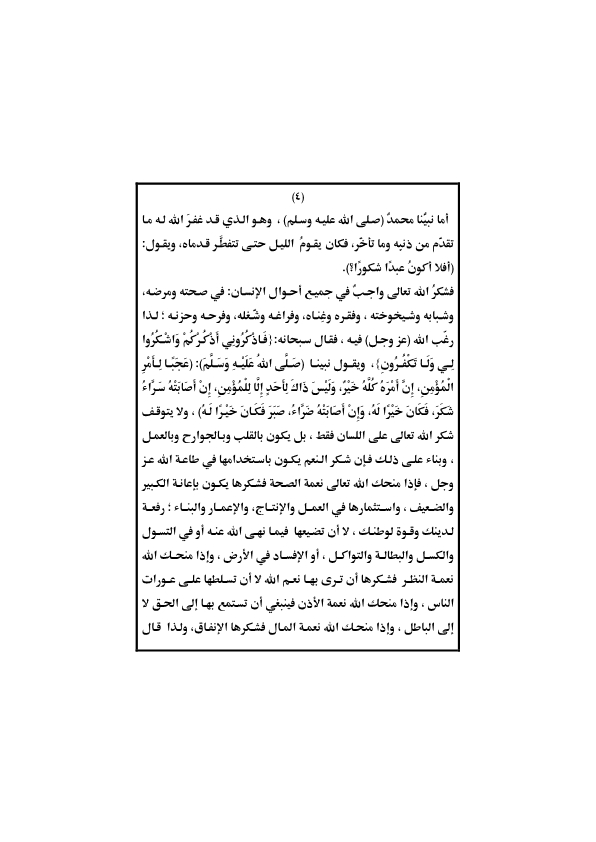 (٤)
أما نبيُّنا محمدٌ (صلى الله عليه وسلم) ، وهو الذي قد غفرَ الله له ما
تقدّم من ذنبه وما تأخّر، فكان يقومُ الليل حتى تتفطَّر قدماه، ويقول:
(أفلا أكونُ عبدًا شكورًا؟).
فشكرُ الله تعالى واجبٌ في جميع أحوال الإنسان: في صحته ومرضه،
وشبابه وشيخوخته ، وفقره وغِناه، وفراغه وشُغله، وفرحه وحزنه ؛ لذا
رغّب الله (عز وجل) فيه ، فقال سبحانه:{فَاذْكُرُونِي أَذْكُرْكُمْ وَاشْكُرُوا
لِي وَلَا تَكْفُرُونِ} ، ويقول نبينا (صَلَّى اللهُ عَلَيْهِ وَسَلَّمَ): (عَجَبًا لِأَمْرِ
الْمُؤْمِنِ، إِنَّ أَمْرَهُ كُلَّهُ خَيْرٌ، وَلَيْسَ ذَاكَ لِأَحَدٍ إِلَّا لِلْمُؤْمِنِ، إِنْ أَصَابَتْهُ سَرَّاءُ
شَكَرَ، فَكَانَ خَيْرًا لَهُ، وَإِنْ أَصَابَتْهُ ضَرَّاءُ، صَبَرَ فَكَانَ خَيْرًا لَهُ) ، ولا يتوقف
شكر الله تعالى على اللسان فقط ، بل يكون بالقلب وبالجوارح وبالعمل
، وبناء على ذلك فإن شكر النعم يكون باستخدامها في طاعة الله عز
وجل ، فإذا منحك الله تعالى نعمة الصحة فشكرها يكون بإعانة الكبير
والضعيف ، واستثمارها في العمل والإنتاج، والإعمار والبناء ؛ رفعة
لدينك وقوة لوطنك ، لا أن تضيعها فيما نهى الله عنه أو في التسول
والكسل والبطالة والتواكل ، أو الإفساد في الأرض ، وإذا منحك الله
نعمة النظر فشكرها أن ترى بها نعم الله لا أن تسلطها على عورات
الناس ، وإذا منحك الله نعمة الأذن فينبغي أن تستمع بها إلى الحق لا
إلى الباطل ، وإذا منحك الله نعمة المال فشكرها الإنفاق، ولذا قال